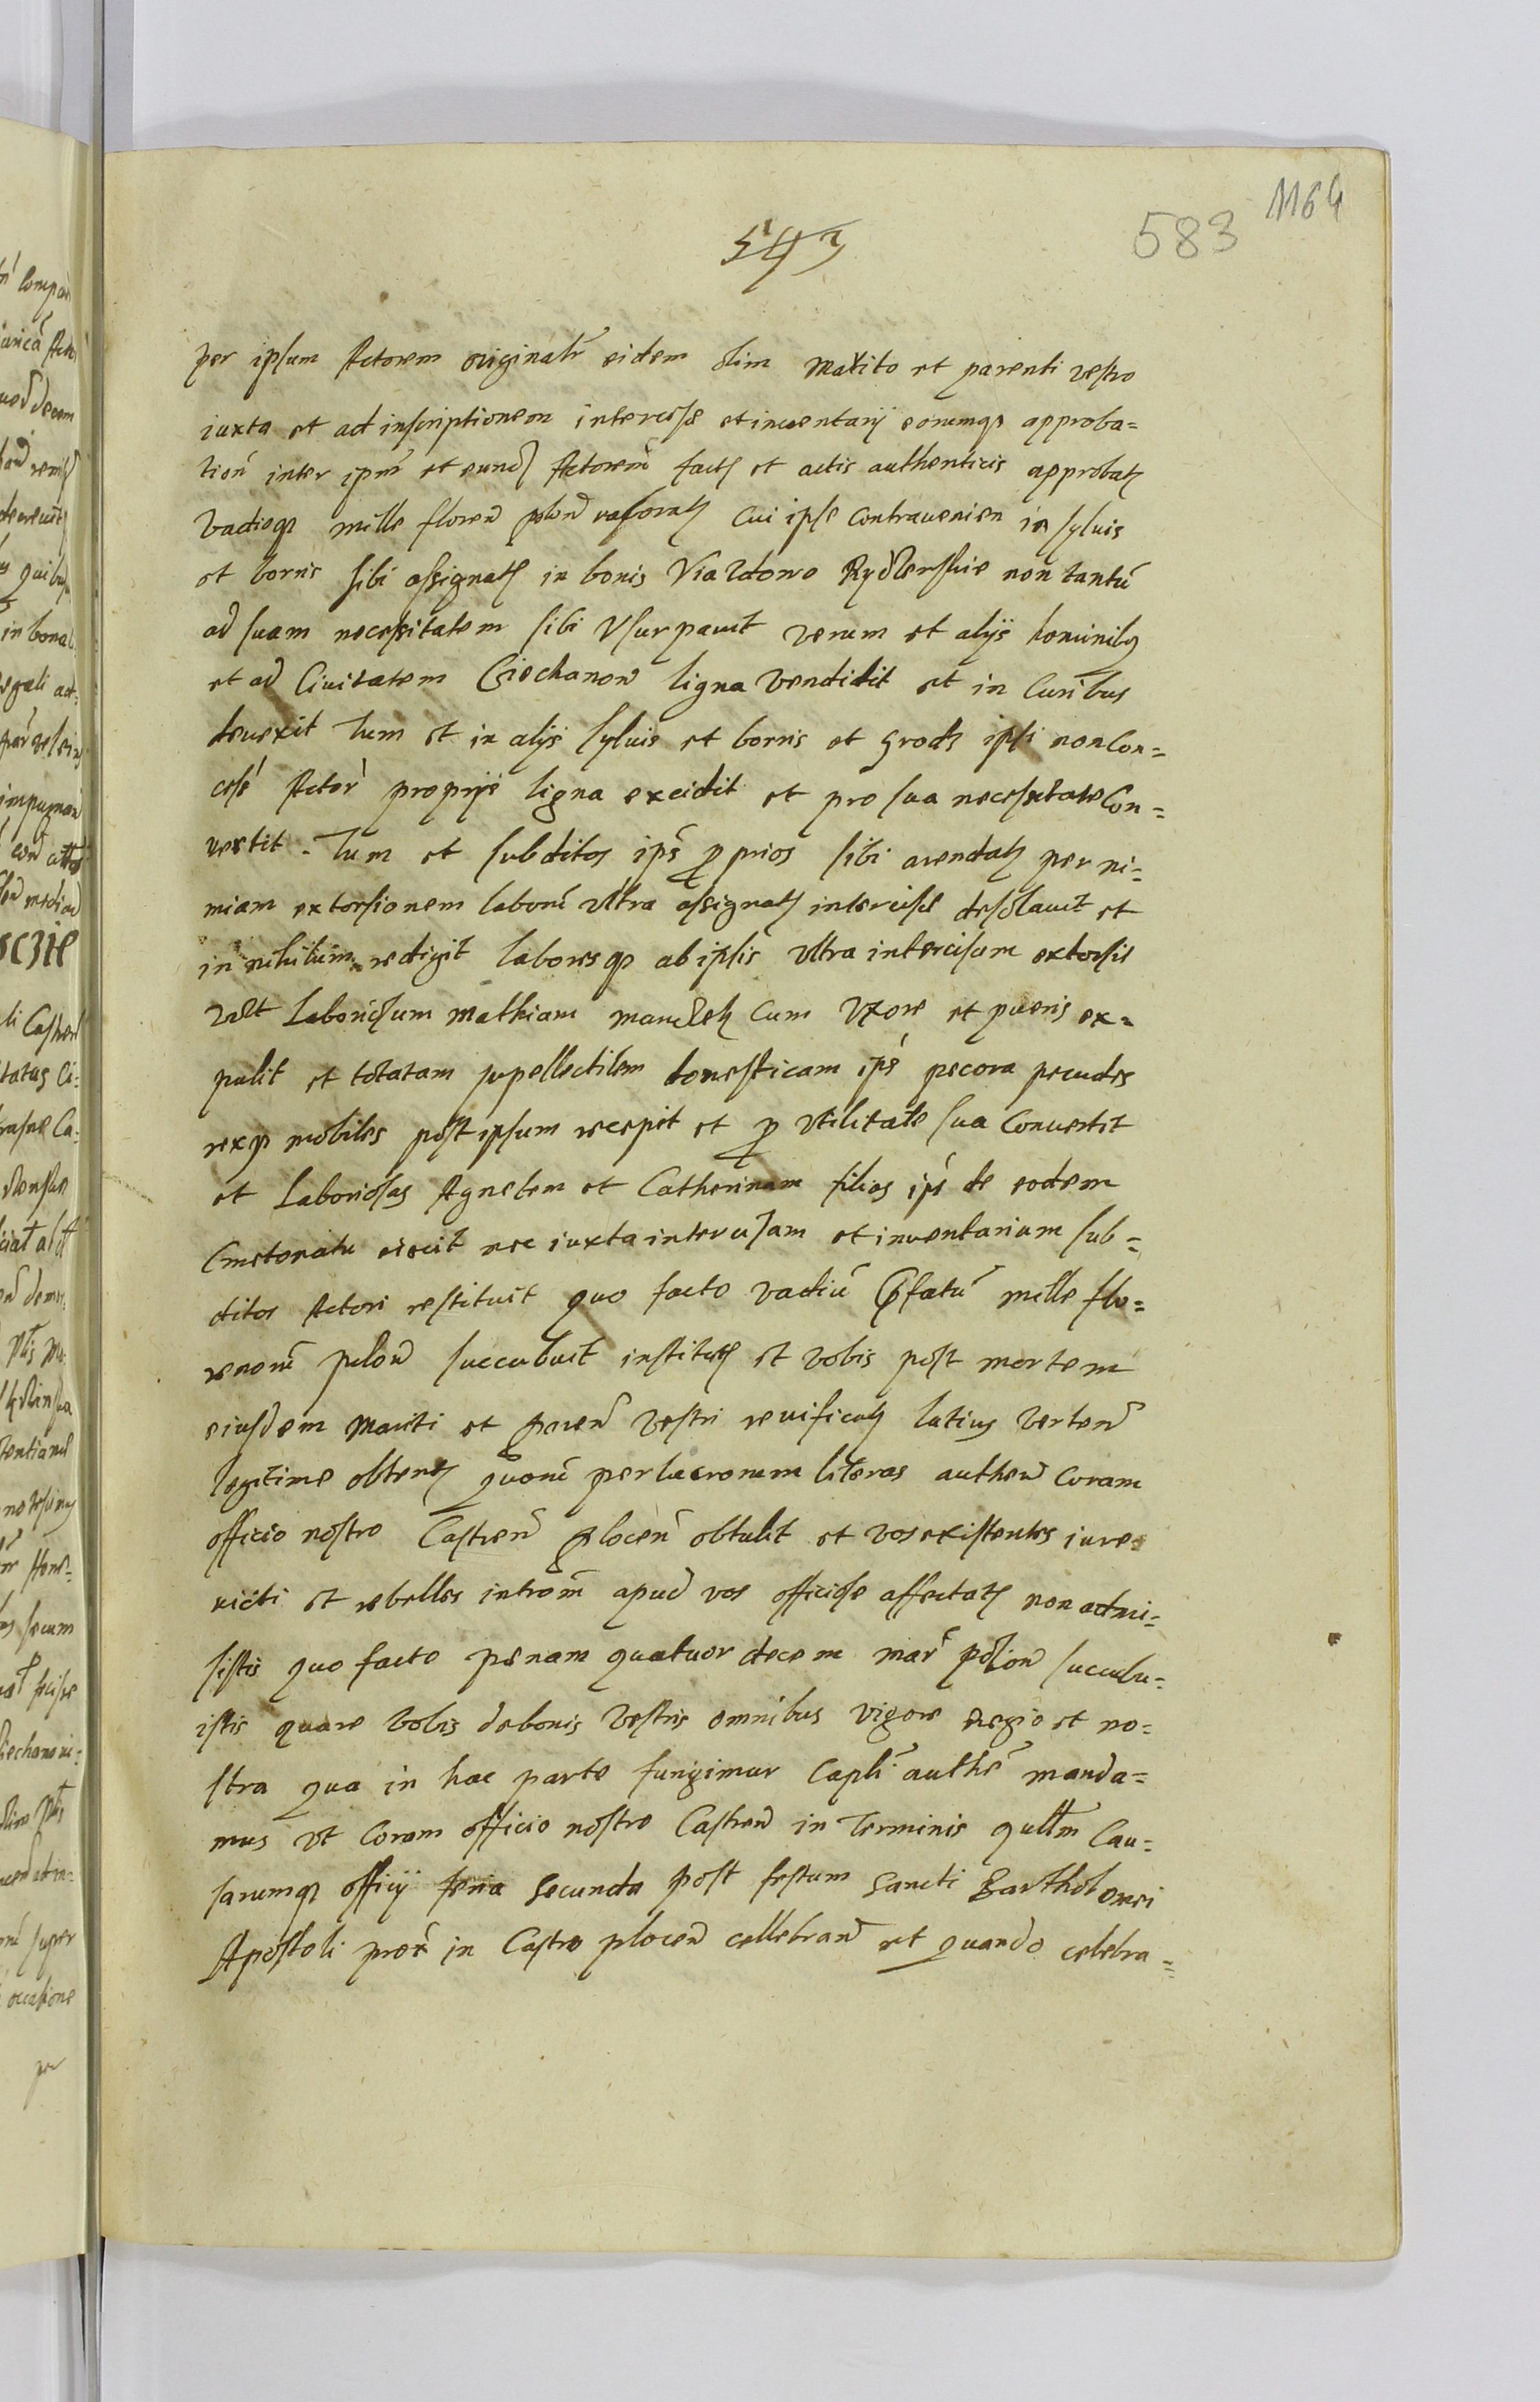 1164
583
543
per ipsum Actorem originalr eidem olim Marito et parenti vestro
iuxta et ad inscriptionem intercise et inventarij eorumq approba=
tion inter ipm et eund Actorem fact et actis authenticis approbat
vadioq mille floren polon roborat cui ipse contravenien in sylvis
et borris sibi assignat in bonis Viazdowo Rydzewskie non tantu
ad suam necessitatem sibi Usurpavit verum et alijs hominibq
et ad Civitatem Ciechanow ligna vendidit et in Curibus
devexit Tum et in alijs sylvis et borris et grods ipsi non Con=
cess Actor proprijs ligna excidit et pro sua necessitate Con=
vertit. Tum et subditos ips pprios sibi arendat per ni=
miam extorsionem laboru ultra assignat intercise desolavit et
in nihilum redigit labores q ab ipsis ultra intercisam extorsit
vdlt Laboriosum Mathiam Cum Uxore et pueris ex=
pulit et totatam supellectilem domesticam ips pecora pecudes
resq mobiles post ipsum recepit et p utilitate sua Convertit
et Laboriosas Agnetem et Catherinam filias ips de eodem
Cmetonatu eiecit nec iuxta intercisam et inventarium sub=
ditos Actori restituit quo facto vadiu pfatu mille flo=
renoru polon succubuit institut et vobis post mortem
eiusdem Mariti et paren vestri revificat latius verten
legitime obtent quoru per lucrorum literas authen coram
officio nostro Castren plocen obtulit et vos existentes iure
victi et rebelles introm apud vos officiose affectat non admi=
sistis quo facto penam quatuordecem mar polon succubu=
istis quare vobis de bonis vestris omnibus vigore regio et no=
stra qua in hac parte fungimur Capli authe manda=
mus ut Coram officio nostro Castren in Terminis qullm Cau=
sarumq officij feria secunda post festum Sancti Bartholomei
Apostoli prox in Castro plocen cellebran et quando celebra=